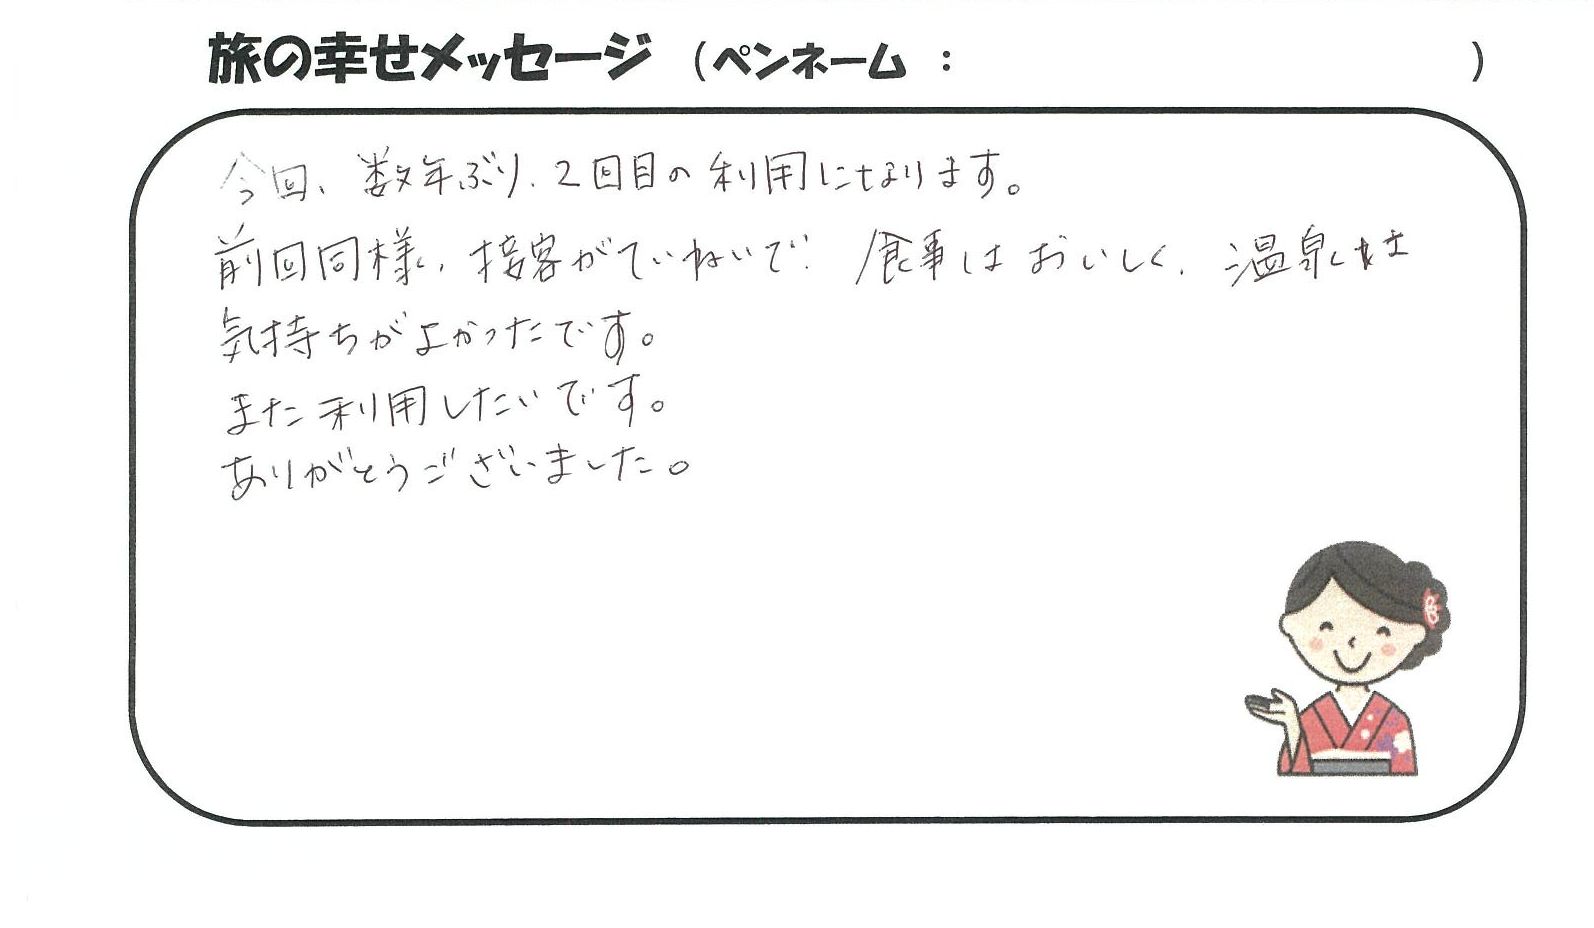 旅の幸せメッセージ (ペンネーム : )
今回、数年ぶり、2回目の利用になります。
前回同様、接客がていねいで、食事はおいしく、温泉は
気持ちがよかったです。
また利用したいです。
ありがとうございました。